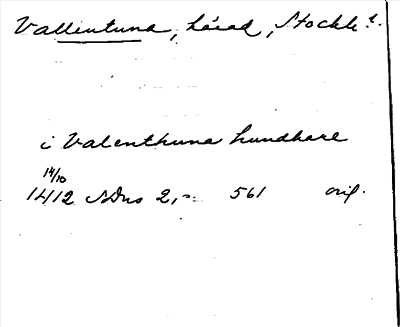 Vallentuna, härad, Stockh. l.
i Valenthuna hundhare
14/10
1412 SDns 2, 561 orig.